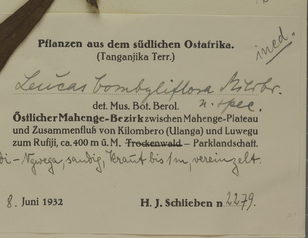 Pflanzen aus dem südlichen Ostafrika.
(Tanganjika Terr.)
ined.
Leucas bombyliflora
n. spec.
det. Mus. Bot. Berol.
Östlicher Mahenge-Bezirk zwischen Mahenge-Plateau
und Zusammenfluß von Kilombero (Ulanga) und Luwegu
zum Rufiji, ca. 400 m ü. M. Trockenwald – Parklandschaft.
sandig, Kraut bis 1m, vereinzelt.
8. Juni 1932 H. J. Schlieben n 2279.